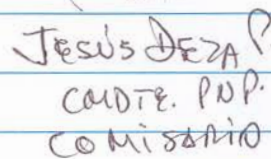 JESÚS DEZA P
CMDTE. PNP.
COMISARIO